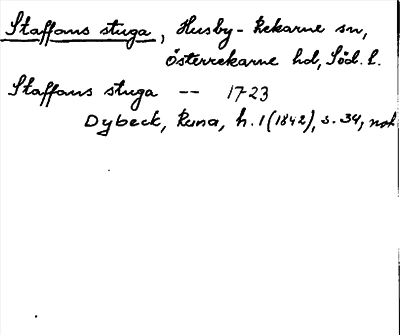 Staffans stuga, Husby-Rekarne sn,
Österrekarne hd, Söd. l.
Staffans stuga -- 17-23
Dybeck, Runa, h. 1 (1842), s. 34, not